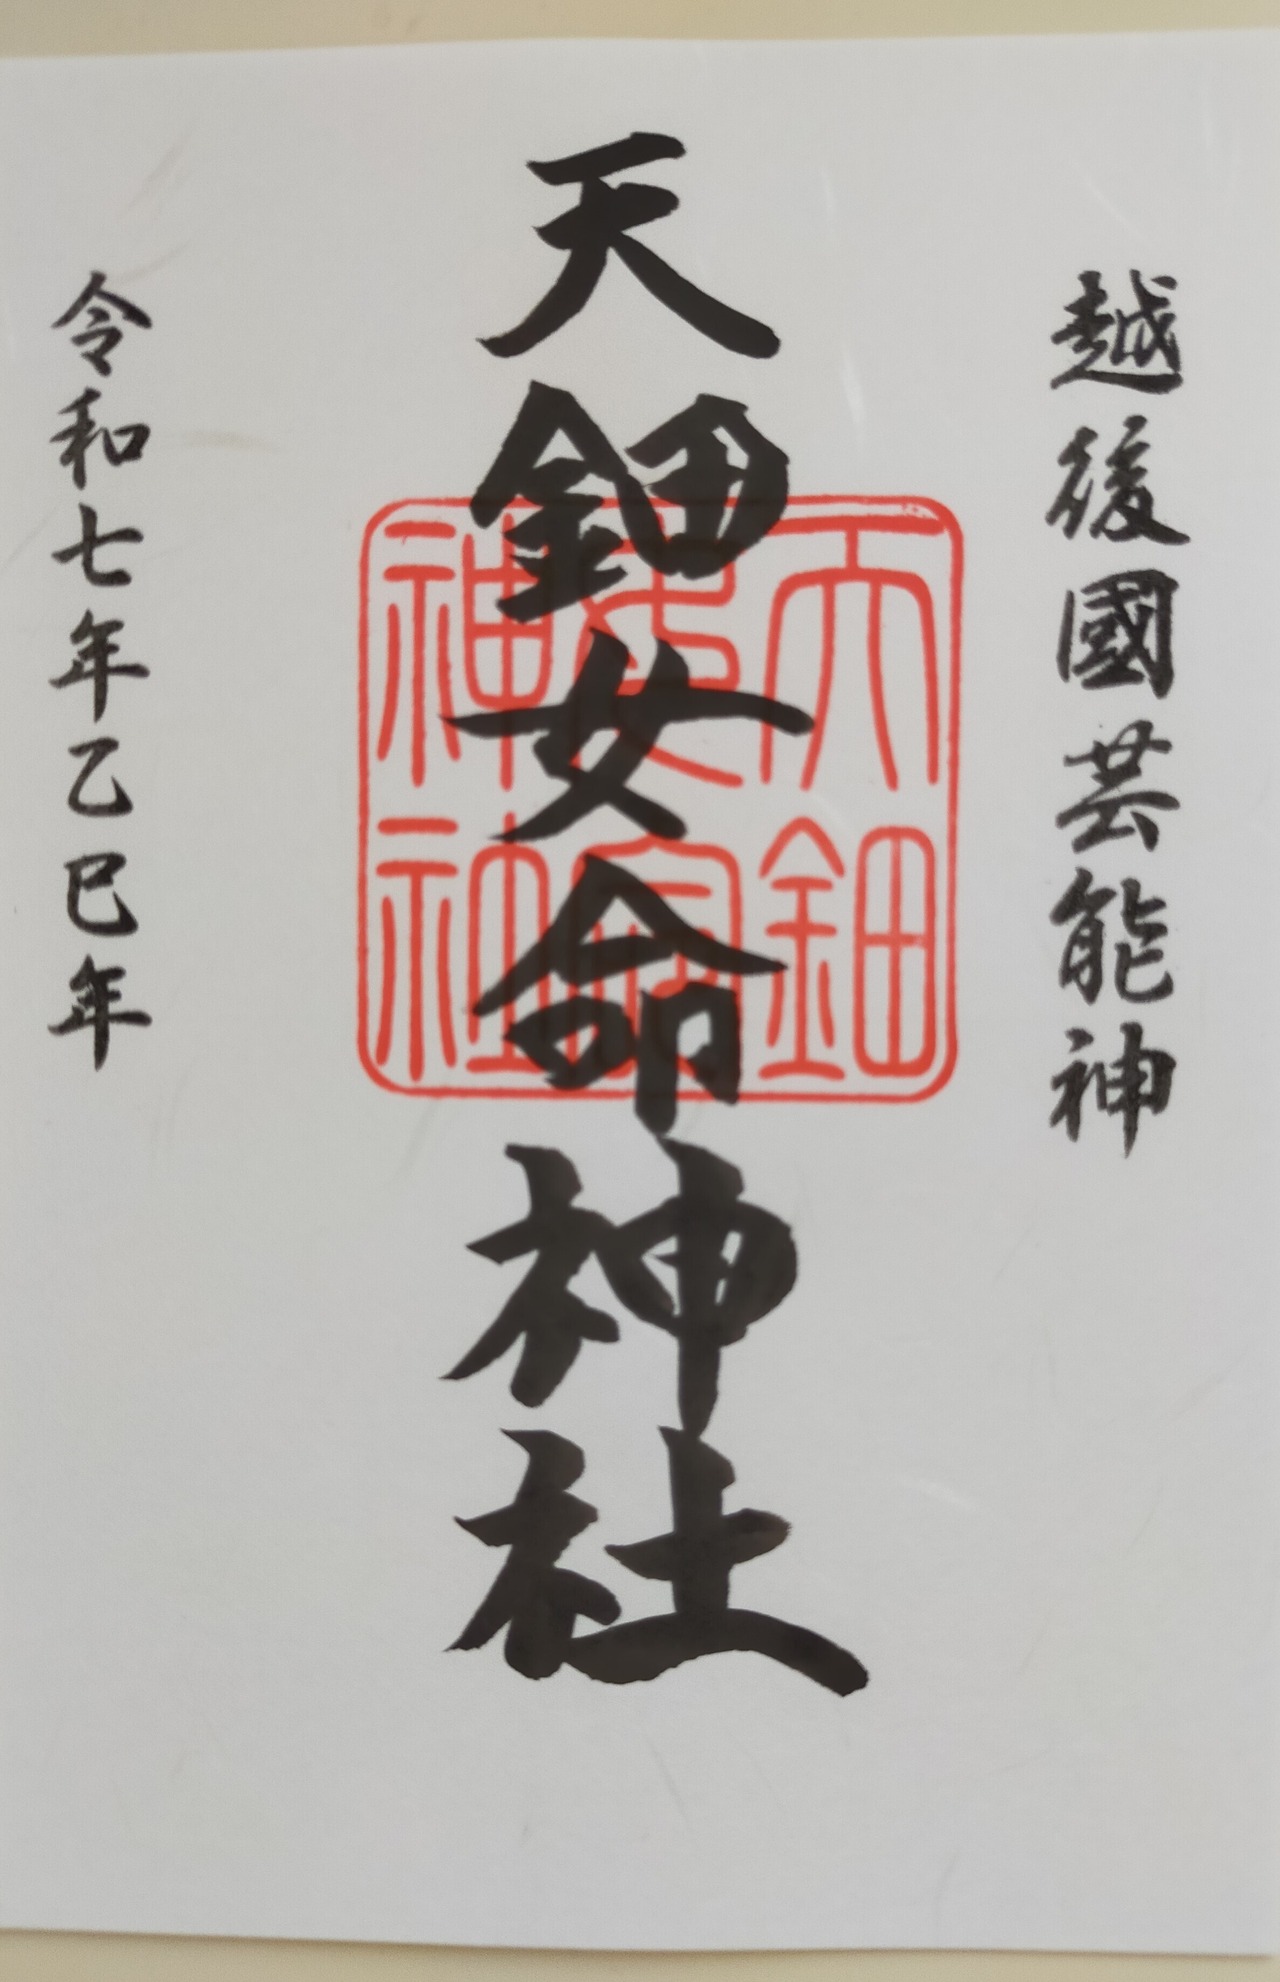 越後國芸能神
天鈿女命神社
令和七年乙巳年
天鈿
女命
神社